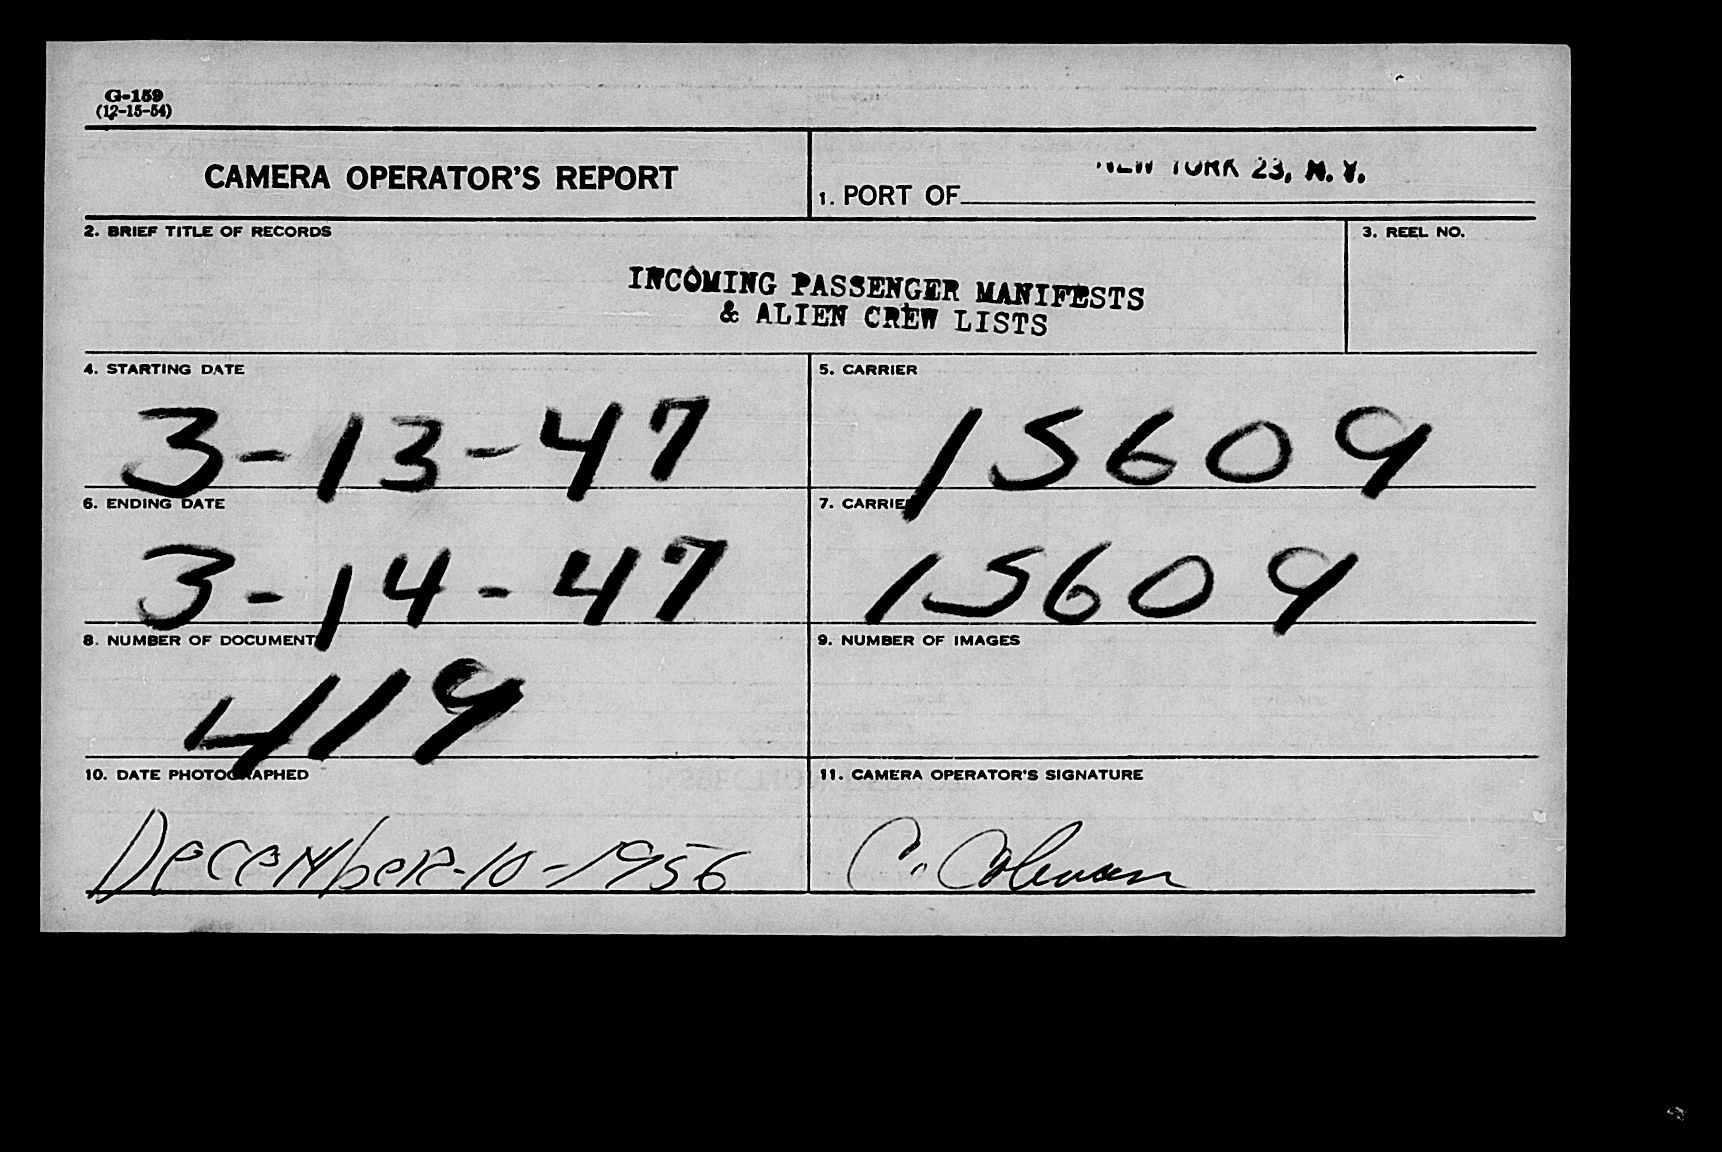 G-159
(12-15-54)
CAMERA OPERATOR'S REPORT
1. PORT OF NEW YORK 23, N. Y.
2. BRIEF TITLE OF RECORDS
3. REEL NO.
INCOMING PASSENGER MANIFESTS
& ALIEN CREW LISTS
4. STARTING DATE
3-13-47
5. CARRIER
15609
6. ENDING DATE
3-14-47
7. CARRIER
15609
8. NUMBER OF DOCUMENTS
419
9. NUMBER OF IMAGES
10. DATE PHOTOGRAPHED
December-10-1956
11. CAMERA OPERATOR'S SIGNATURE
C. Coleman